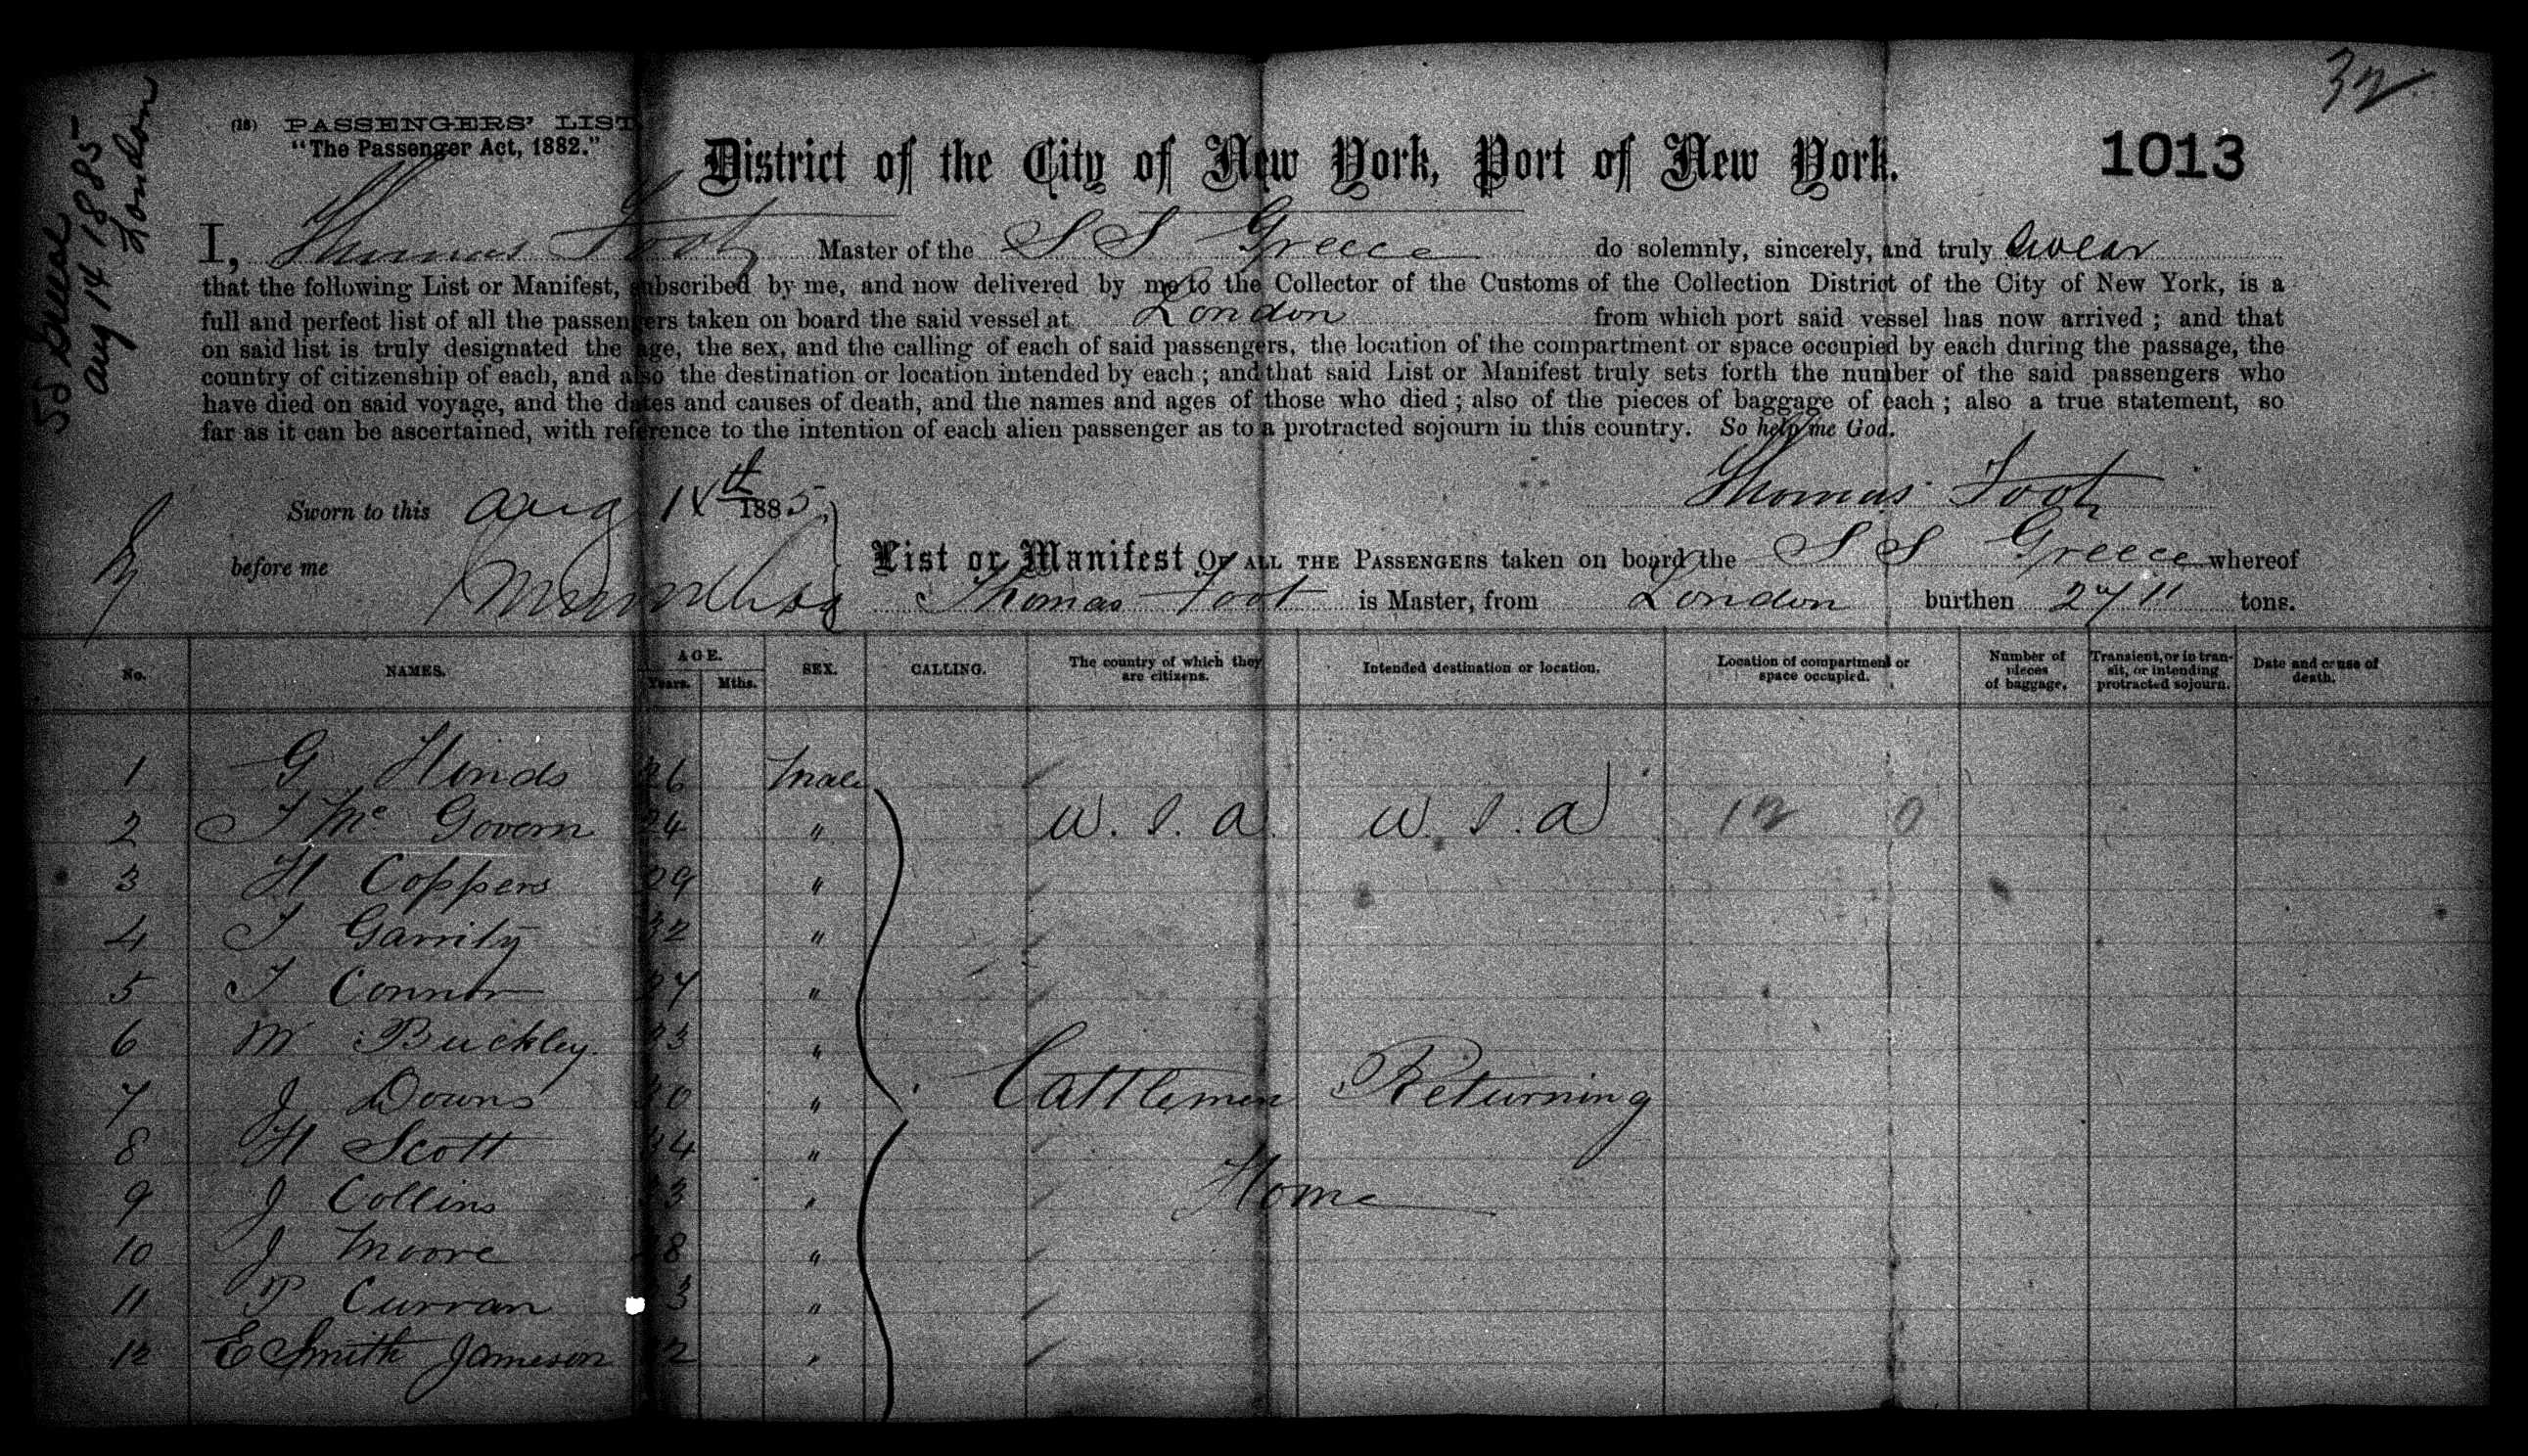 32
(18) PASSENGERS' LIST
"The Passenger Act, 1882."
District of the City of New York, Port of New York.
1013
SS Greece
Aug 14 1885
London
I, Thomas Foot Master of the S S Greece do solemnly, sincerely, and truly swear
that the following List or Manifest, subscribed by me, and now delivered by me to the Collector of the Customs of the Collection District of the City of New York, is a
full and perfect list of all the passengers taken on board the said vessel at London from which port said vessel has now arrived; and that
on said list is truly designated the age, the sex, and the calling of each of said passengers, the location of the compartment or space occupied by each during the passage, the
country of citizenship of each, and also the destination or location intended by each; and that said List or Manifest truly sets forth the number of the said passengers who
have died on said voyage, and the dates and causes of death, and the names and ages of those who died; also of the pieces of baggage of each; also a true statement, so
far as it can be ascertained, with reference to the intention of each alien passenger as to a protracted sojourn in this country. So help me God.
Thomas Foot
Sworn to this Aug 14th 1885
before me
List or Manifest OF ALL THE PASSENGERS taken on board the S S Greece whereof
Thomas Foot is Master, from London burthen 2711 tons.
No. NAMES. AGE. Years. Mths. SEX. CALLING. The country of which they are citizens. Intended destination or location. Location of compartment or space occupied. Number of pieces of baggage. Transient, or in transit, or intending protracted sojourn. Date and cause of death.
1 G Hinds 26 Male
2 T Mc Govern 24 " U.S.A. U.S.A 12 0
3 H Coppers 29 "
4 T Garrity 32 "
5 T Connor 27 "
6 M Buckley "
7 J Downs " Cattlemen Returning
8 H Scott "
9 J Collins " Home
10 J Moore "
11 P Curran "
12 E Smith Jameson "